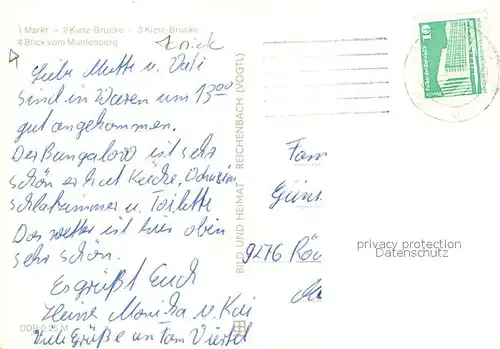 1 Markt – 2 Kietz-Brücke – 3 Kietz-Brücke
4 Blick vom Mühlenberg
Knick
Liebe Mutti u. Vati
sind in Waren um 13⁰⁰
gut angekommen.
Der Bungalow ist sehr
schön er hat Küche,
Schlafzimmer u. Toilette
Das Wetter ist hier oben
sehr schön.
Es grüßt Euch
Heinz Monika u. Kai
Viele Grüße an Fam Viertel
DDR 0,25 M
BILD UND HEIMAT REICHENBACH (VOGTL)
10
Fam
Gün
9276 Rö
privacy protection
Datenschutz